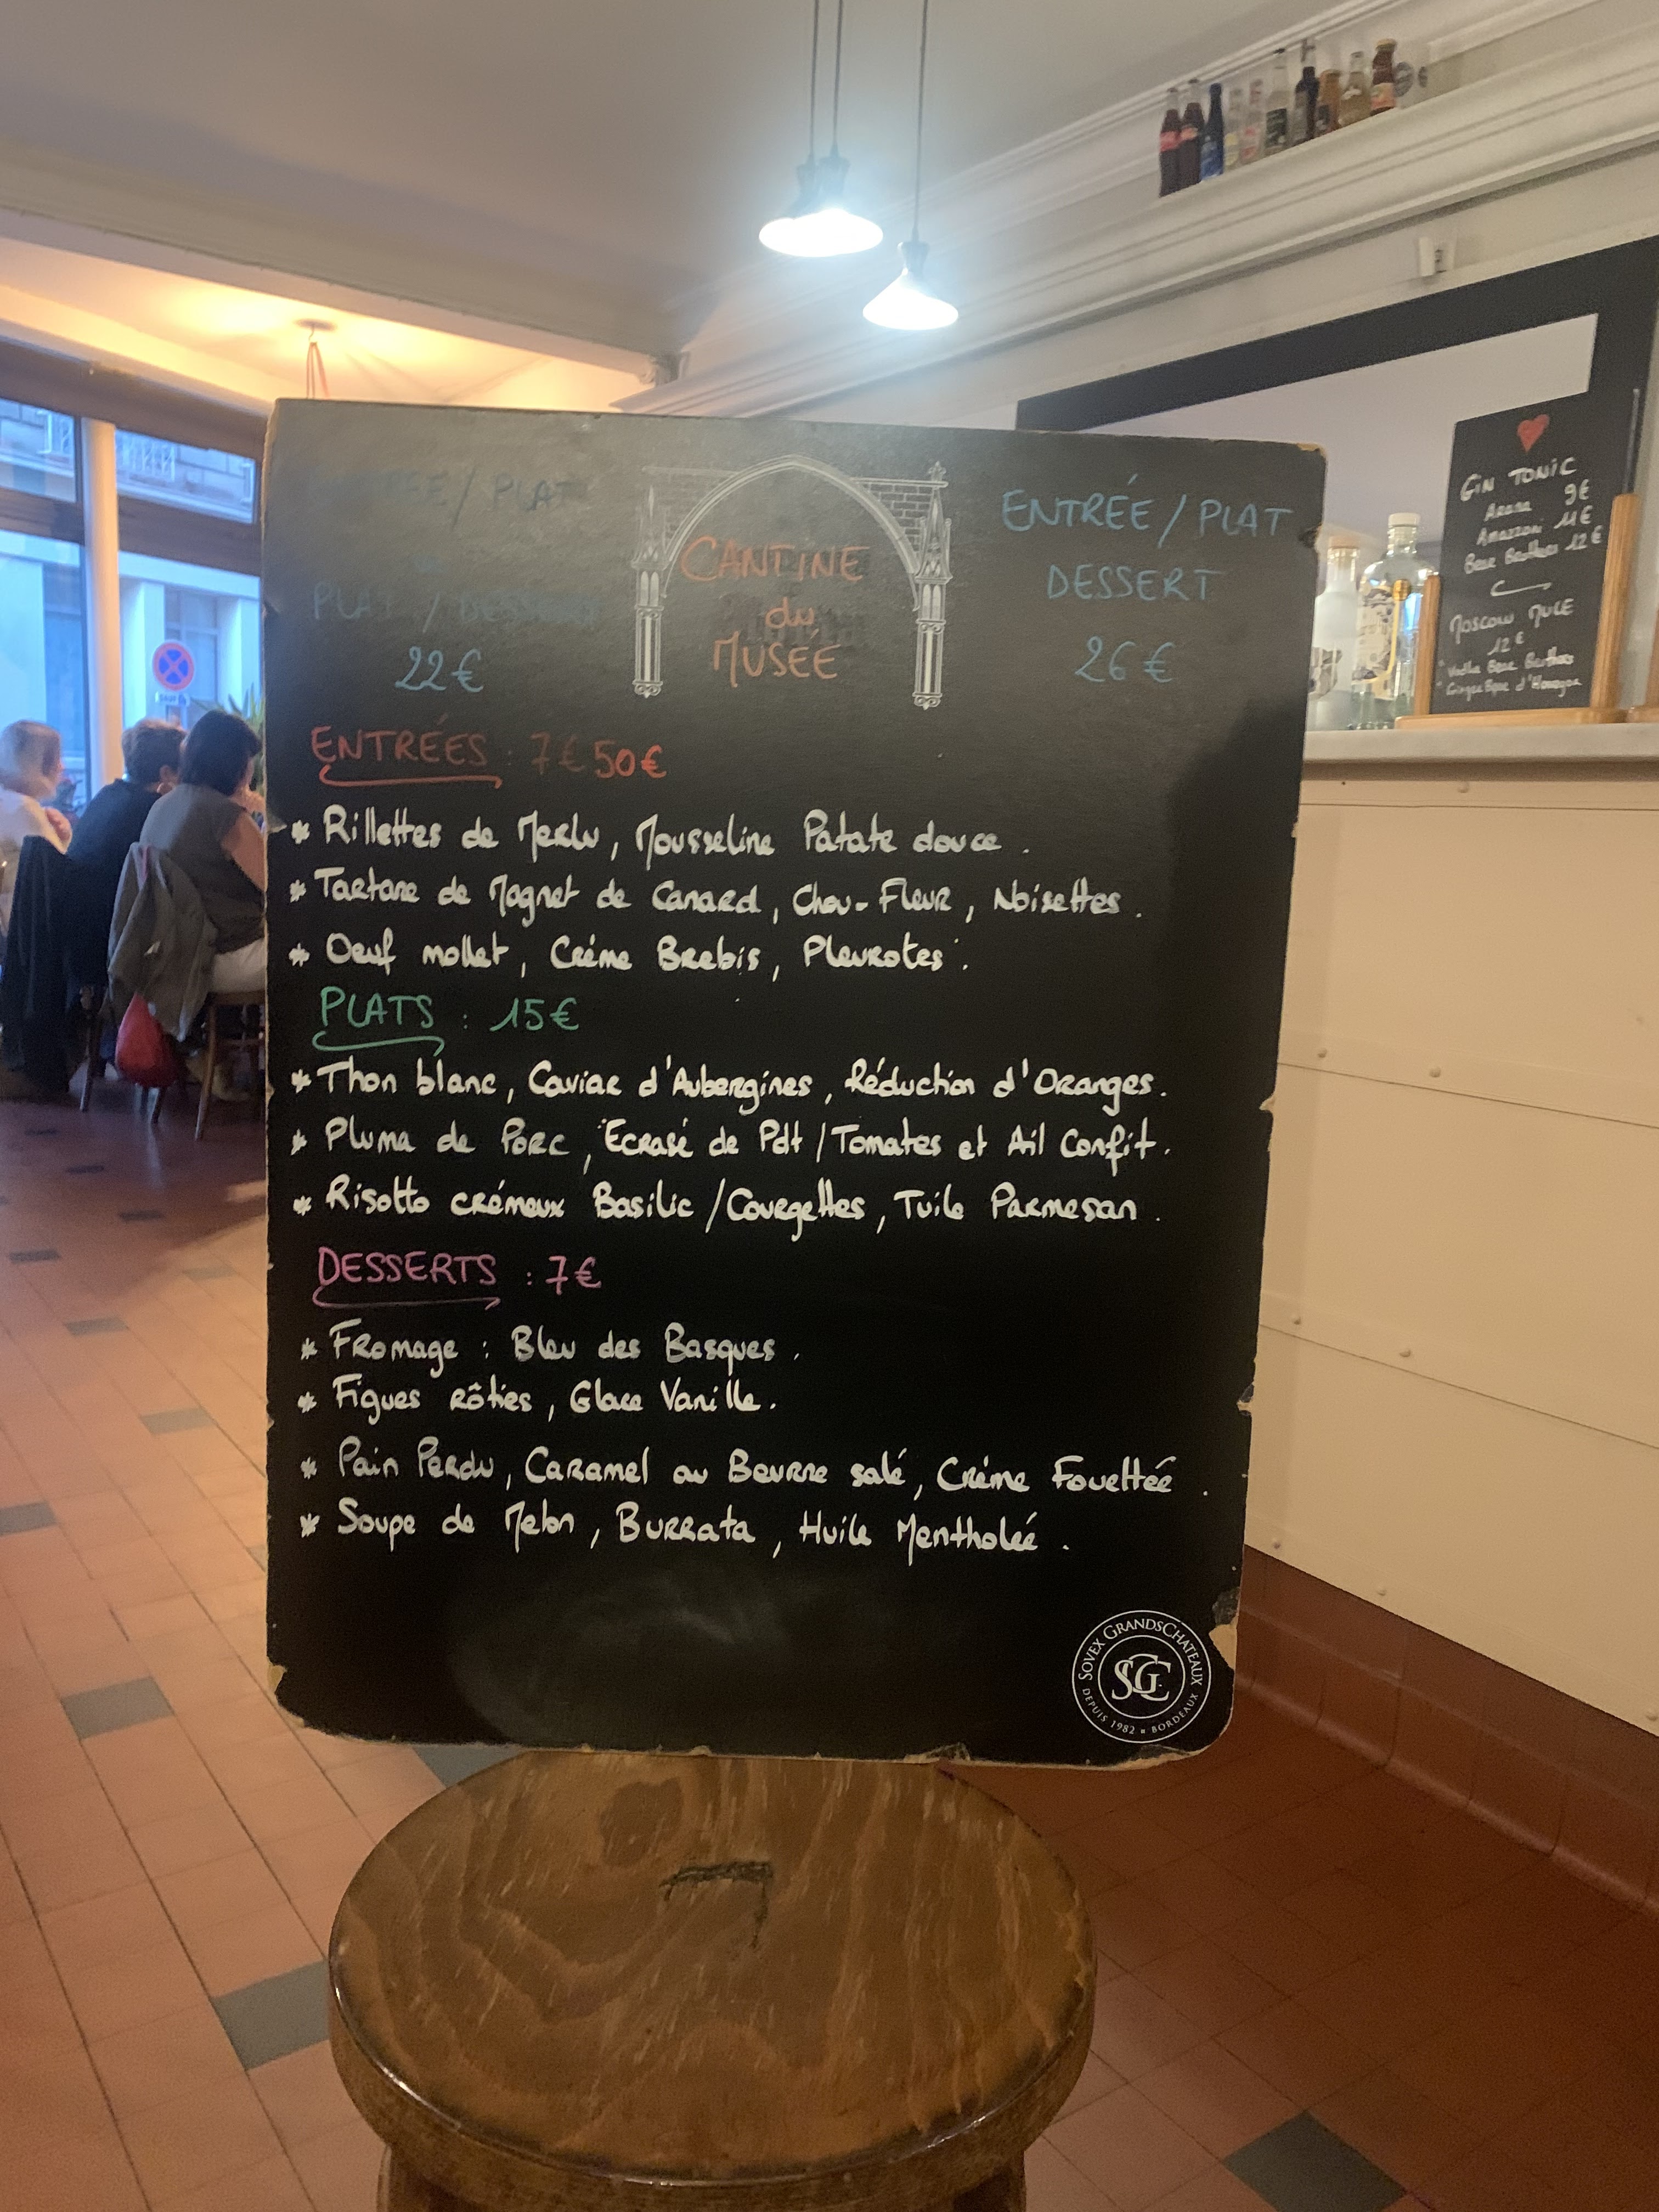 ENTRÉE / PLAT
PLAT / DESSERT
22€
CANTINE
du
MUSÉE
ENTRÉE / PLAT
DESSERT
26€
ENTRÉES : 7€50€
* Rillettes de Merlu, Mousseline Patate douce .
* Tartare de Magret de Canard, Chou-Fleur, Noisettes .
* Oeuf mollet, Crème Brebis, Pleurotes .
PLATS : 15€
* Thon blanc, Caviar d'Aubergines, Réduction d'Oranges.
* Pluma de Porc, Ecrasé de Pdt / Tomates et Ail Confit.
* Risotto crémeux Basilic / Courgettes, Tuile Parmesan .
DESSERTS : 7€
* Fromage : Bleu des Basques .
* Figues rôties, Glace Vanille.
* Pain Perdu, Caramel au Beurre salé, Crème Fouettée .
* Soupe de Melon, Burrata, Huile Mentholée .
SOVEX GRANDSCHATEAUX
SGC
DEPUIS 1982 • BORDEAUX
GIN TONIC
9€
Amazzoni 11€
Bene Brothers 12€
MOSCOW MULE
12€
* Vodka Bene Brothers
* Ginger Beer d'Hysope